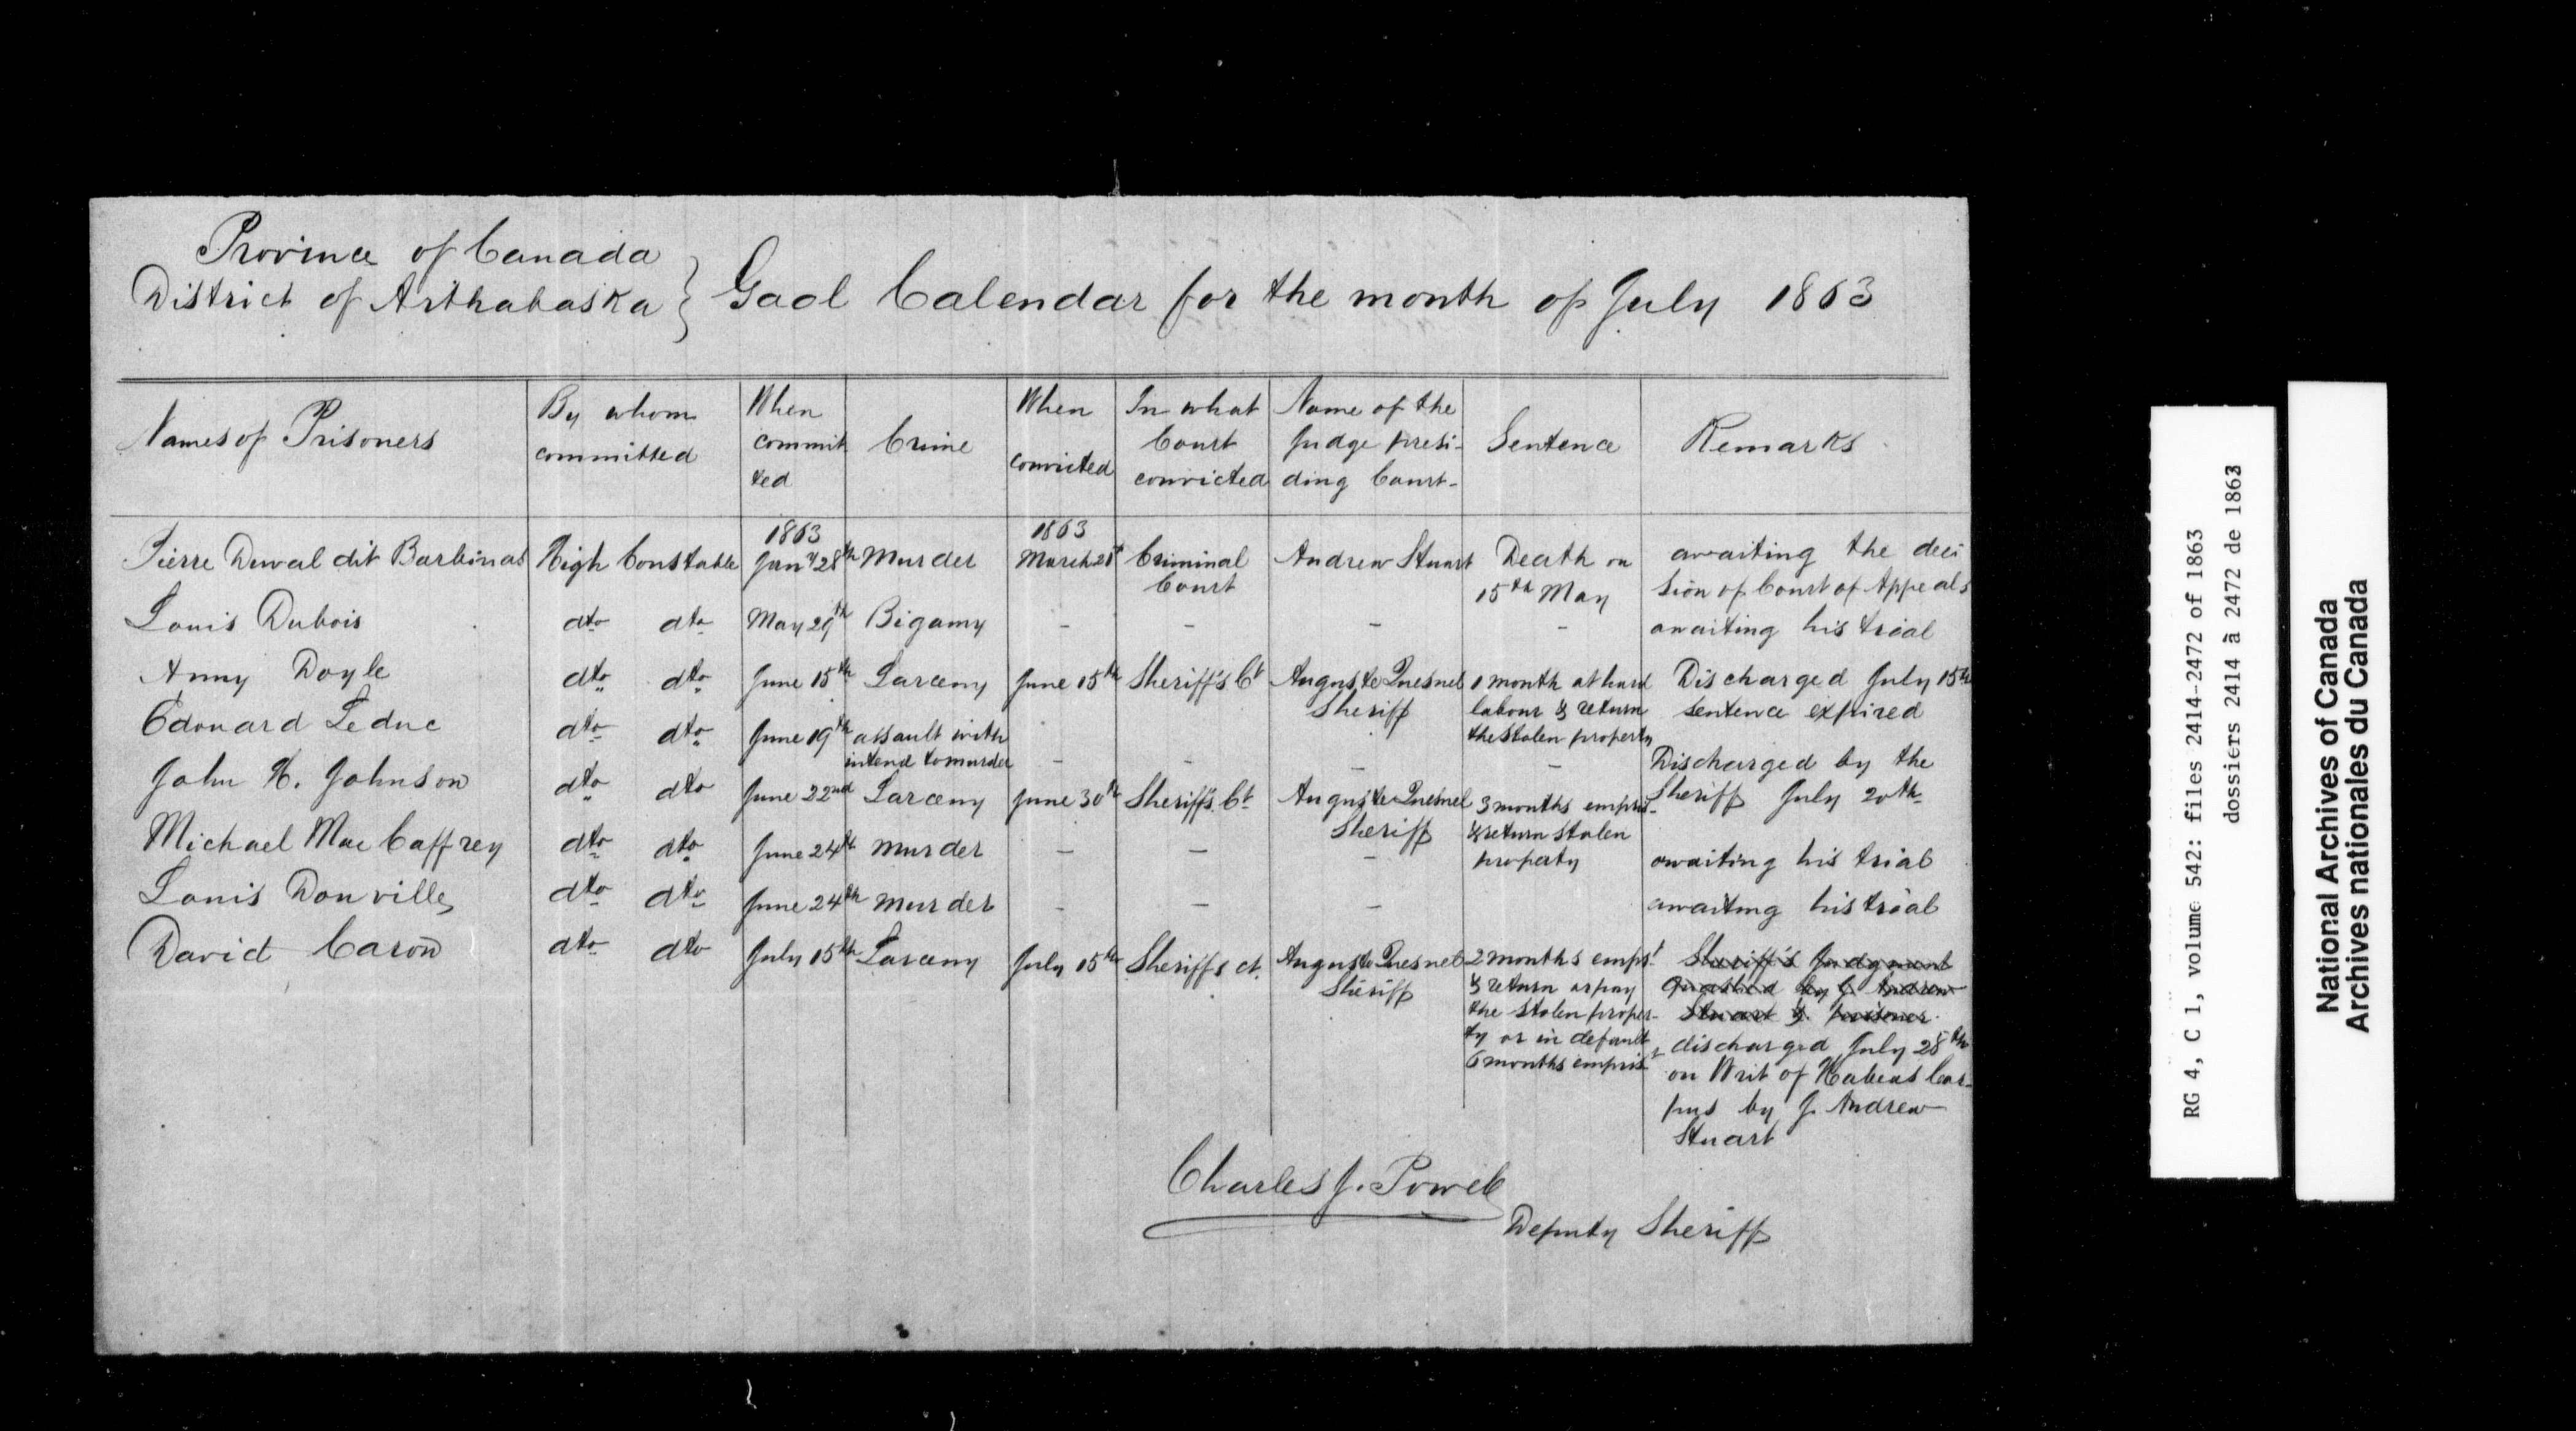 Province of Canada
District of Arthabaska } Gaol Calendar for the month of July 1863
Names of Prisoners
By whom
committed
When
commit
ted
Crime
When
convicted
In what
Court
convicted
Name of the
Judge presi-
ding Court-
Sentence
Remarks
1863
1863
Pierre Duval dit Barbinas High Constable Jany 28th Murder March 28t Criminal Andrew Stuart Death on awaiting the deci
Court 15th May sion of Court of Appeals
Louis Dubois dto dto May 29th Bigamy - - - - awaiting his trial
Anny Doyle dto dto June 15th Larceny June 15th Sheriff's Ct Auguste Quesnel 1 month at hard Discharged July 15th
Sheriff labour & return sentence expired
the stolen property
Edouard Leduc dto dto June 19th assault with
intend to murder - - - - Discharged by the
Sheriff July 20th
John H. Johnson dto dto June 22nd Larceny June 30th Sheriff's Ct Auguste Quesnel 3 months empris-
Sheriff & return stolen
property
Michael Mac Caffrey dto dto June 24th murder - - - awaiting his trial
Louis Donville dto dto June 24th murder - - - awaiting his trial
David Caron dto dto July 15th Larceny July 15th Sheriffs ct. Auguste Quesnel 2 months empst Sheriff's Judgment
Sheriff & return or pay Quashed by J. Andrew
the stolen proper- Stuart & prisoner
ty or in default discharged July 28th
6 months emprist on Writ of Habeas Cor-
pus by J. Andrew
Stuart
Charles J. Powell
Deputy Sheriff
RG 4, C 1, volume 542: files 2414-2472 of 1863
dossiers 2414 à 2472 de 1863
National Archives of Canada
Archives nationales du Canada